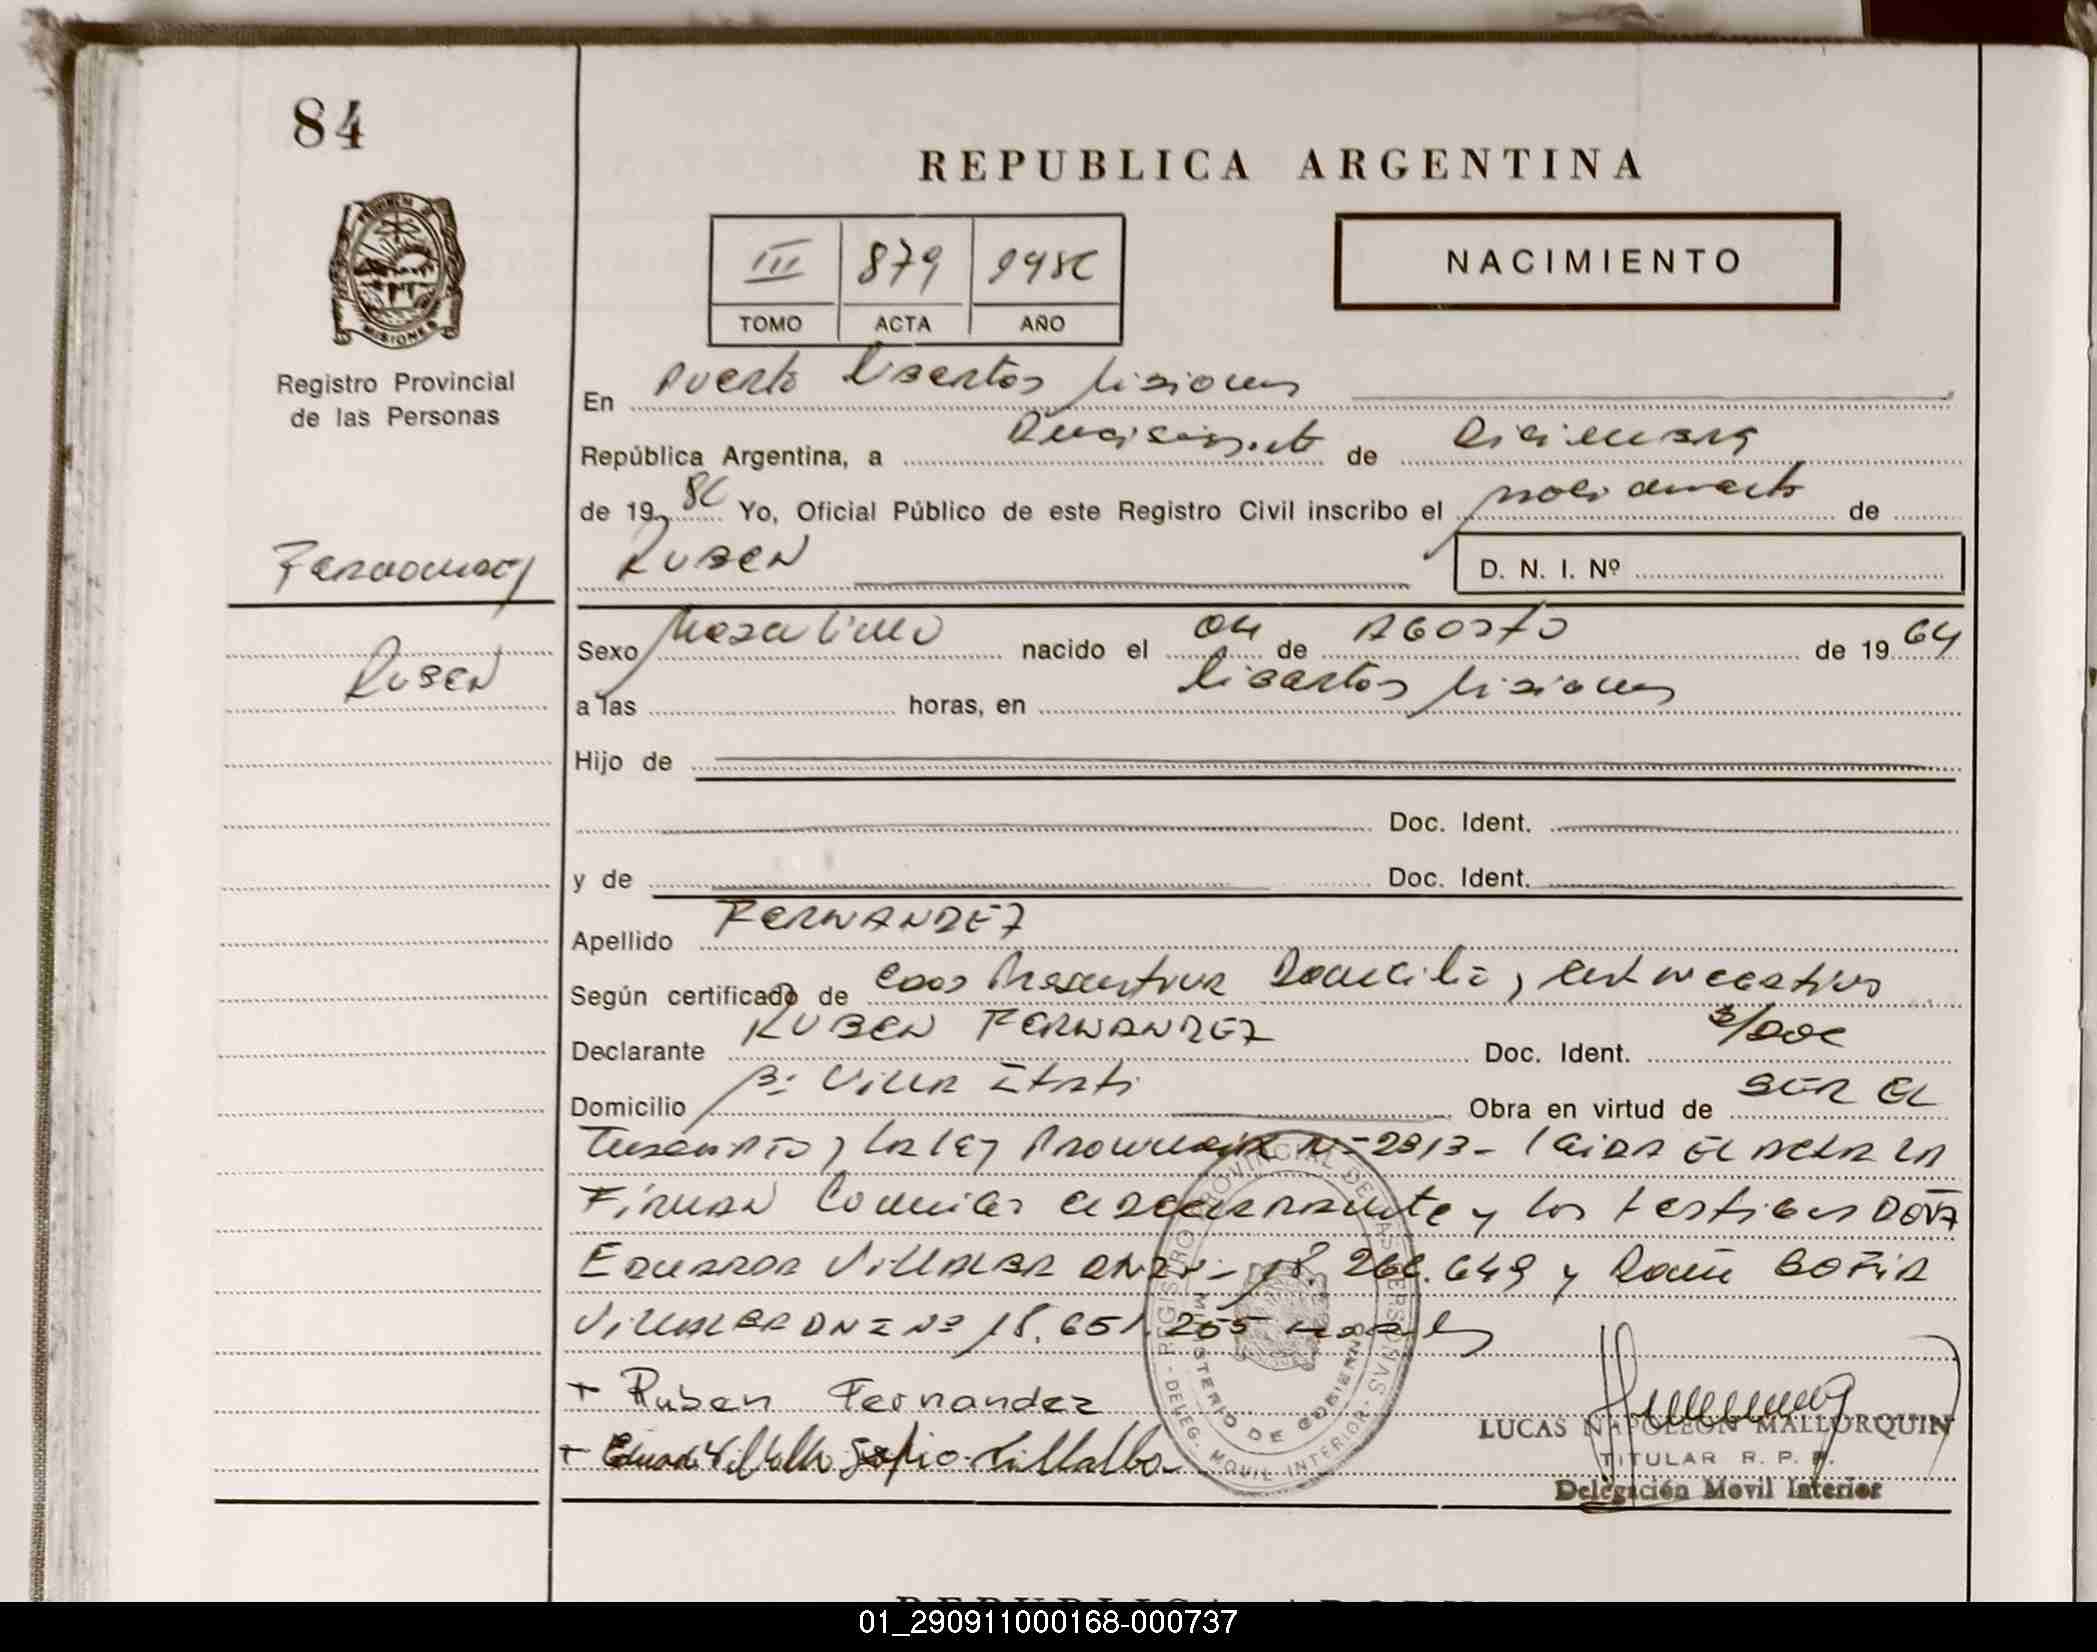 84
REPUBLICA ARGENTINA
III 879 1986
TOMO ACTA AÑO
NACIMIENTO
PROVINCIA DE
MISIONES
Registro Provincial
de las Personas
En Puerto Libertad Misiones
República Argentina, a de Diciembre
de 1986 Yo, Oficial Público de este Registro Civil inscribo el nacimiento de
Fernandez
RUBEN
D. N. I. Nº
Sexo Masculino nacido el 04 de AGOSTO de 1964
Ruben
a las horas, en Libertad Misiones
Hijo de
Doc. Ident.
y de Doc. Ident.
Apellido FERNANDEZ
Según certificado de
Declarante RUBEN FERNANDEZ Doc. Ident. S/DOC
Domicilio Bº VILLA ITATI Obra en virtud de SER EL
y la ley Provincial Nº 2313 - leida EL ACTA LA
FIRMAN Conmigo el declarante y los testigos
EDUARDO VILLALBA DNI Nº 18.266.649 y SOFIA
VILLALBA DNI Nº 18.651.255
+ Ruben Fernandez
+ Villalba Villalba
REGISTRO PROVINCIAL DE LAS PERSONAS
MINISTERIO DE GOBIERNO
- DELEG. MOVIL INTERIOR -
LUCAS NAPOLEON MALLORQUIN
TITULAR R. P. P.
Delegación Movil Interior
01_290911000168-000737